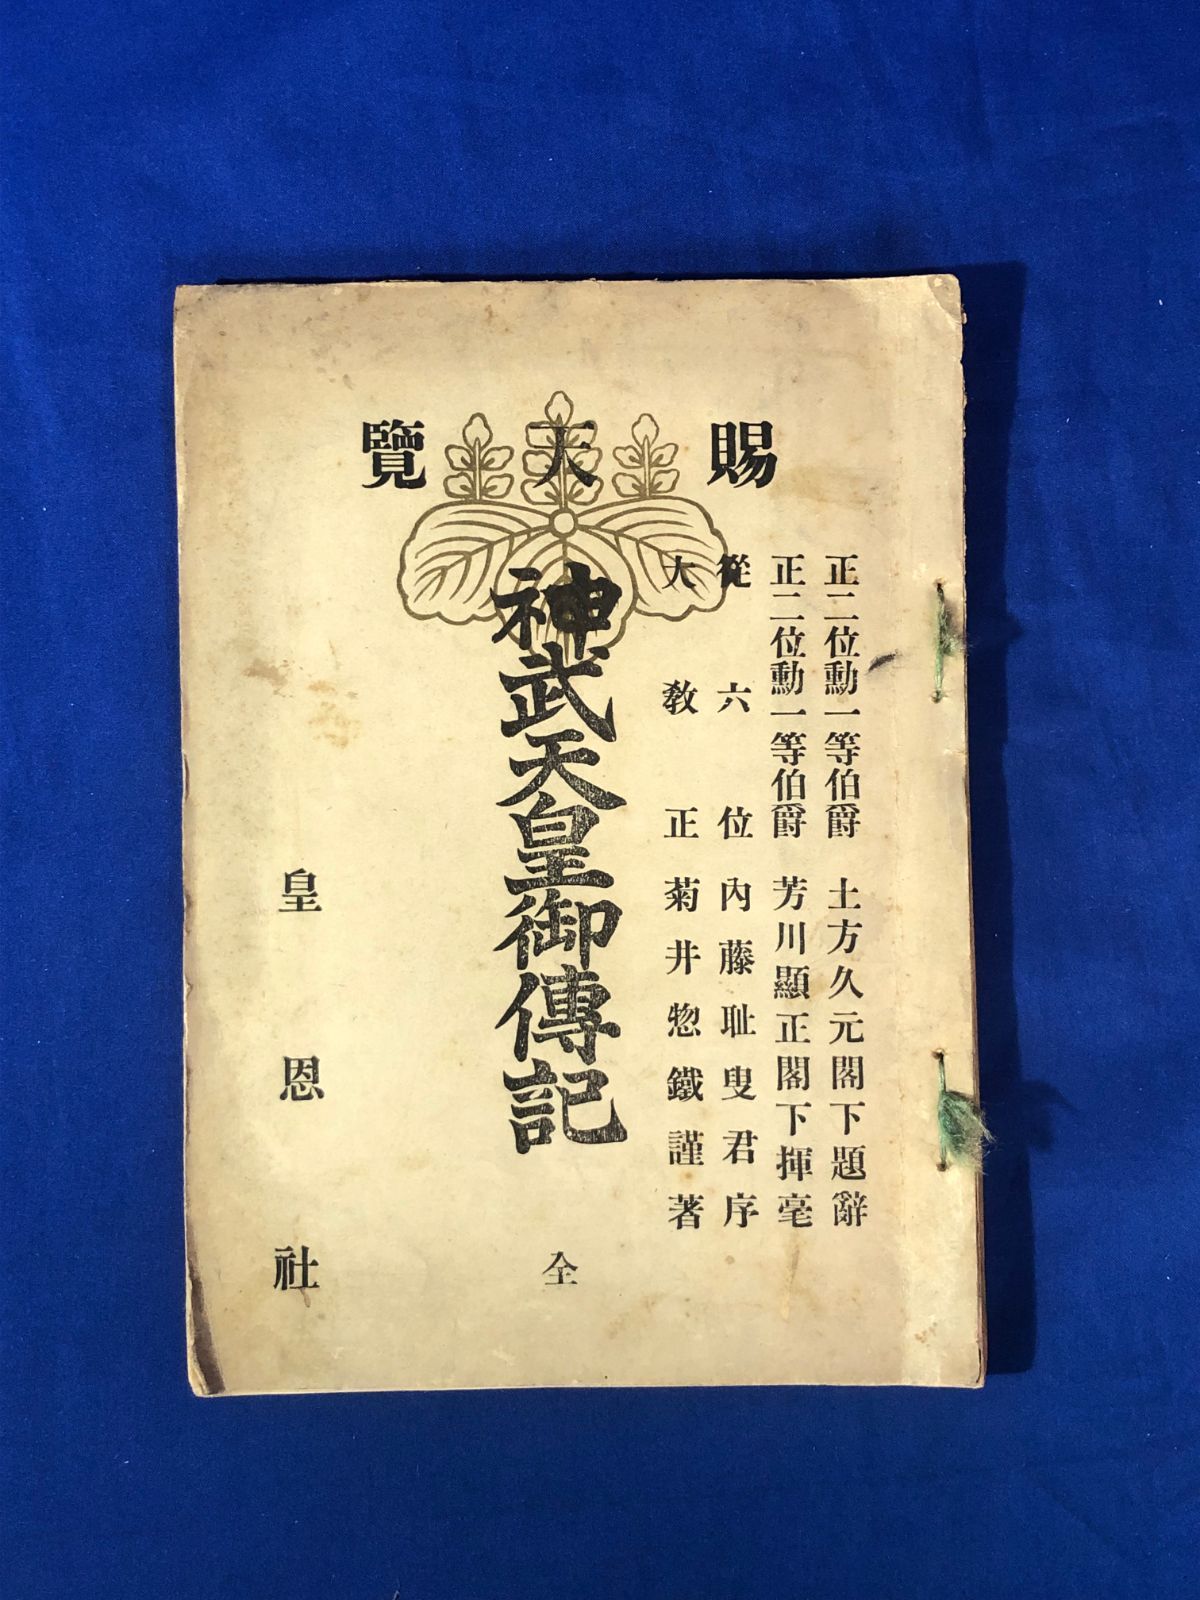 賜天覽
正二位勳一等伯爵 土方久元閣下題辭
正二位勳一等伯爵 芳川顯正閣下揮毫
從六位 內藤耻叟君序
大教正 菊井惣鐵謹著
神武天皇御傳記 全
皇恩社